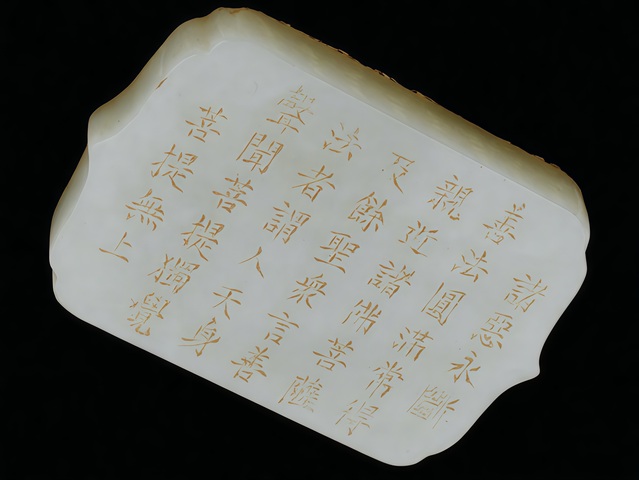 諸惡永斷
善法圓滿常得
親近諸佛菩薩
及餘聖衆言善
法者謂人天身
聲聞菩提獨覺
菩提無上